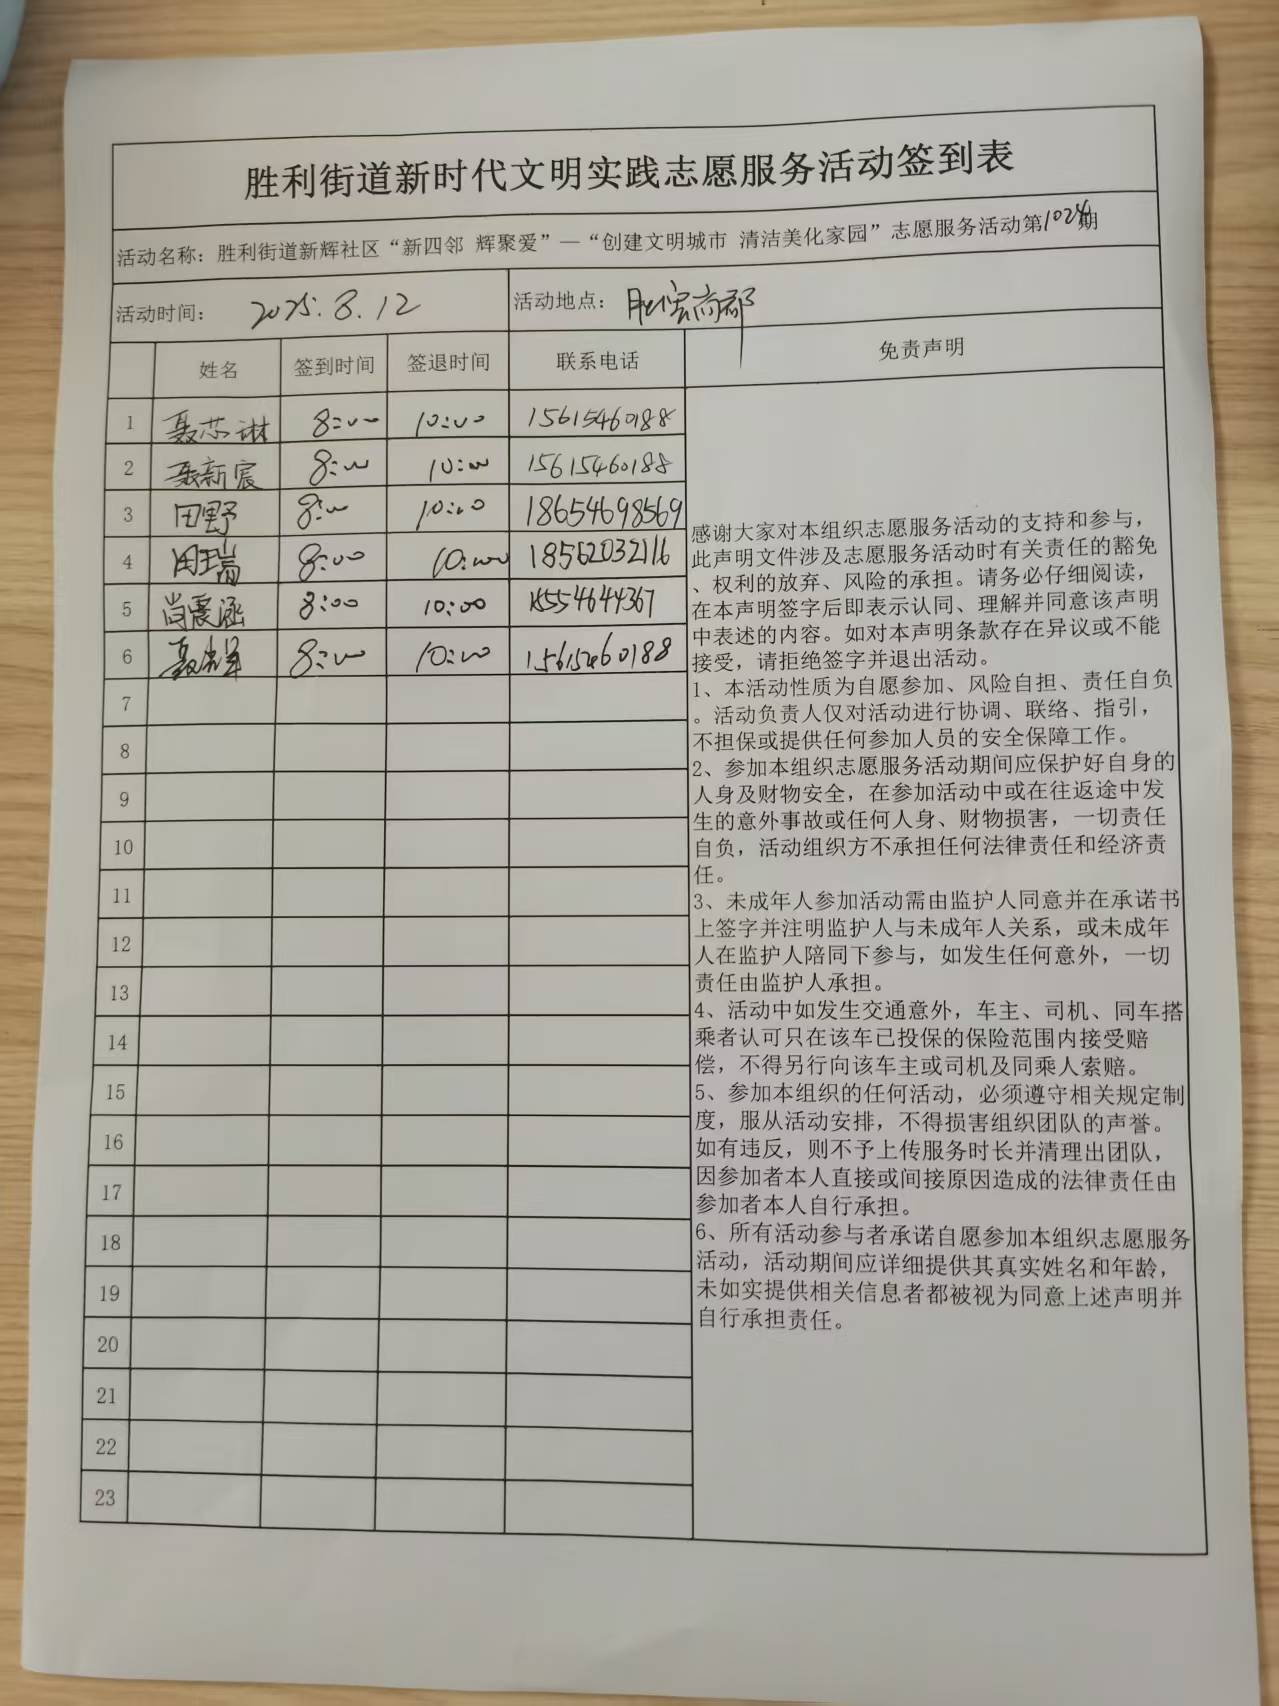 胜利街道新时代文明实践志愿服务活动签到表
活动名称：胜利街道新辉社区“新四邻 辉聚爱”—“创建文明城市 清洁美化家园”志愿服务活动第1024期
活动时间： 2025.8.12 活动地点： 胜宏商郡
姓名 签到时间 签退时间 联系电话 免责声明
1 聂芯琳 8:00 10:00 15615460188
2 聂新宸 8:00 10:00 15615460188
3 田野 8:00 10:00 18654698569
4 田瑞 8:00 10:00 18562032116
5 尚震涵 8:00 10:00 15554644367
6 聂 8:00 10:00 15615460188
7
8
9
10
11
12
13
14
15
16
17
18
19
20
21
22
23
感谢大家对本组织志愿服务活动的支持和参与，
此声明文件涉及志愿服务活动时有关责任的豁免
、权利的放弃、风险的承担。请务必仔细阅读，
在本声明签字后即表示认同、理解并同意该声明
中表述的内容。如对本声明条款存在异议或不能
接受，请拒绝签字并退出活动。
1、本活动性质为自愿参加、风险自担、责任自负
。活动负责人仅对活动进行协调、联络、指引，
不担保或提供任何参加人员的安全保障工作。
2、参加本组织志愿服务活动期间应保护好自身的
人身及财物安全，在参加活动中或在往返途中发
生的意外事故或任何人身、财物损害，一切责任
自负，活动组织方不承担任何法律责任和经济责
任。
3、未成年人参加活动需由监护人同意并在承诺书
上签字并注明监护人与未成年人关系，或未成年
人在监护人陪同下参与，如发生任何意外，一切
责任由监护人承担。
4、活动中如发生交通意外，车主、司机、同车搭
乘者认可只在该车已投保的保险范围内接受赔
偿，不得另行向该车主或司机及同乘人索赔。
5、参加本组织的任何活动，必须遵守相关规定制
度，服从活动安排，不得损害组织团队的声誉。
如有违反，则不予上传服务时长并清理出团队，
因参加者本人直接或间接原因造成的法律责任由
参加者本人自行承担。
6、所有活动参与者承诺自愿参加本组织志愿服务
活动，活动期间应详细提供其真实姓名和年龄，
未如实提供相关信息者都被视为同意上述声明并
自行承担责任。